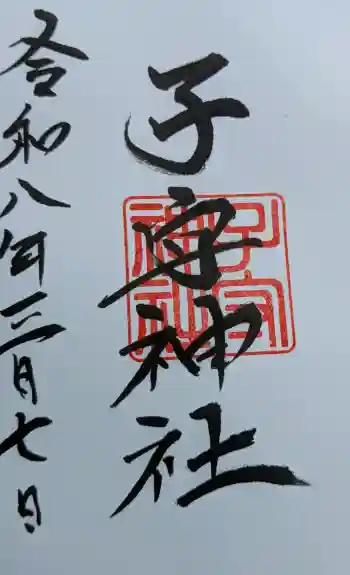 子守神社
子守神社
令和八年三月七日